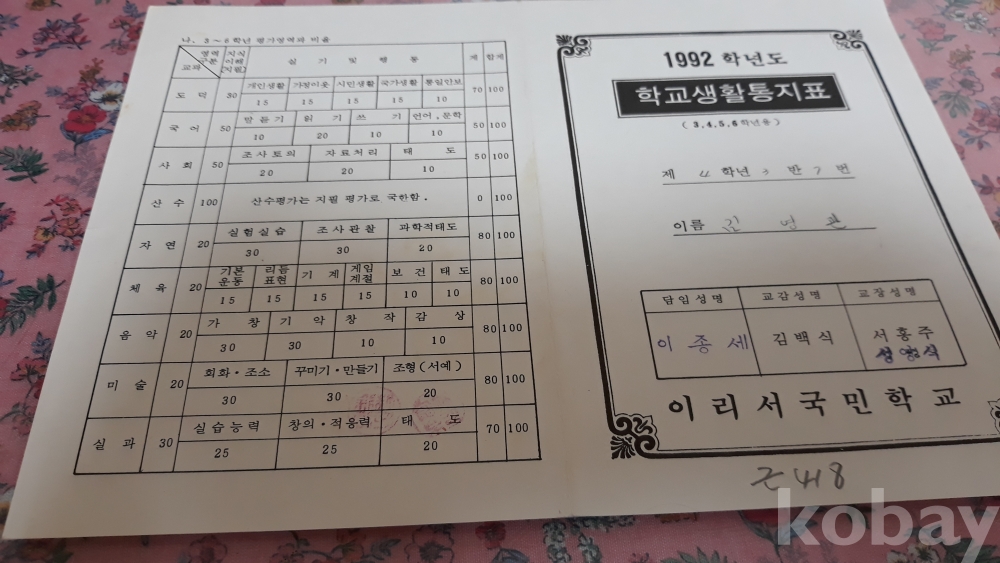 나. 3~6학년 평가영역과 비율
교과 영역 구분 지식 이해 (지필) 실기 및 행동 계 합계
도덕 30 개인생활 가정이웃 시민생활 국가생활 통일안보 70 100
15 15 15 15 10
국어 50 말듣기 읽기 쓰기 언어,문학 50 100
10 20 10 10
사회 50 조사토의 자료처리 태도 50 100
20 20 10
산수 100 산수평가는 지필 평가로 국한함. 0 100
자연 20 실험실습 조사관찰 과학적태도 80 100
30 30 20
체육 20 기본운동 리듬표현 기계 게임계절 보건 태도 80 100
15 15 15 15 10 10
음악 20 가창 기악 창작 감상 80 100
30 30 10 10
미술 20 회화·조소 꾸미기·만들기 조형(서예) 80 100
30 30 20
실과 30 실습능력 창의·적응력 태도 70 100
25 25 20
1992 학년도
학교생활통지표
(3,4,5,6학년용)
제 4 학년 3 반 7 번
이름 김영관
담임성명 교감성명 교장성명
이종세 김백식 서홍주
이리서국민학교
418
kobay